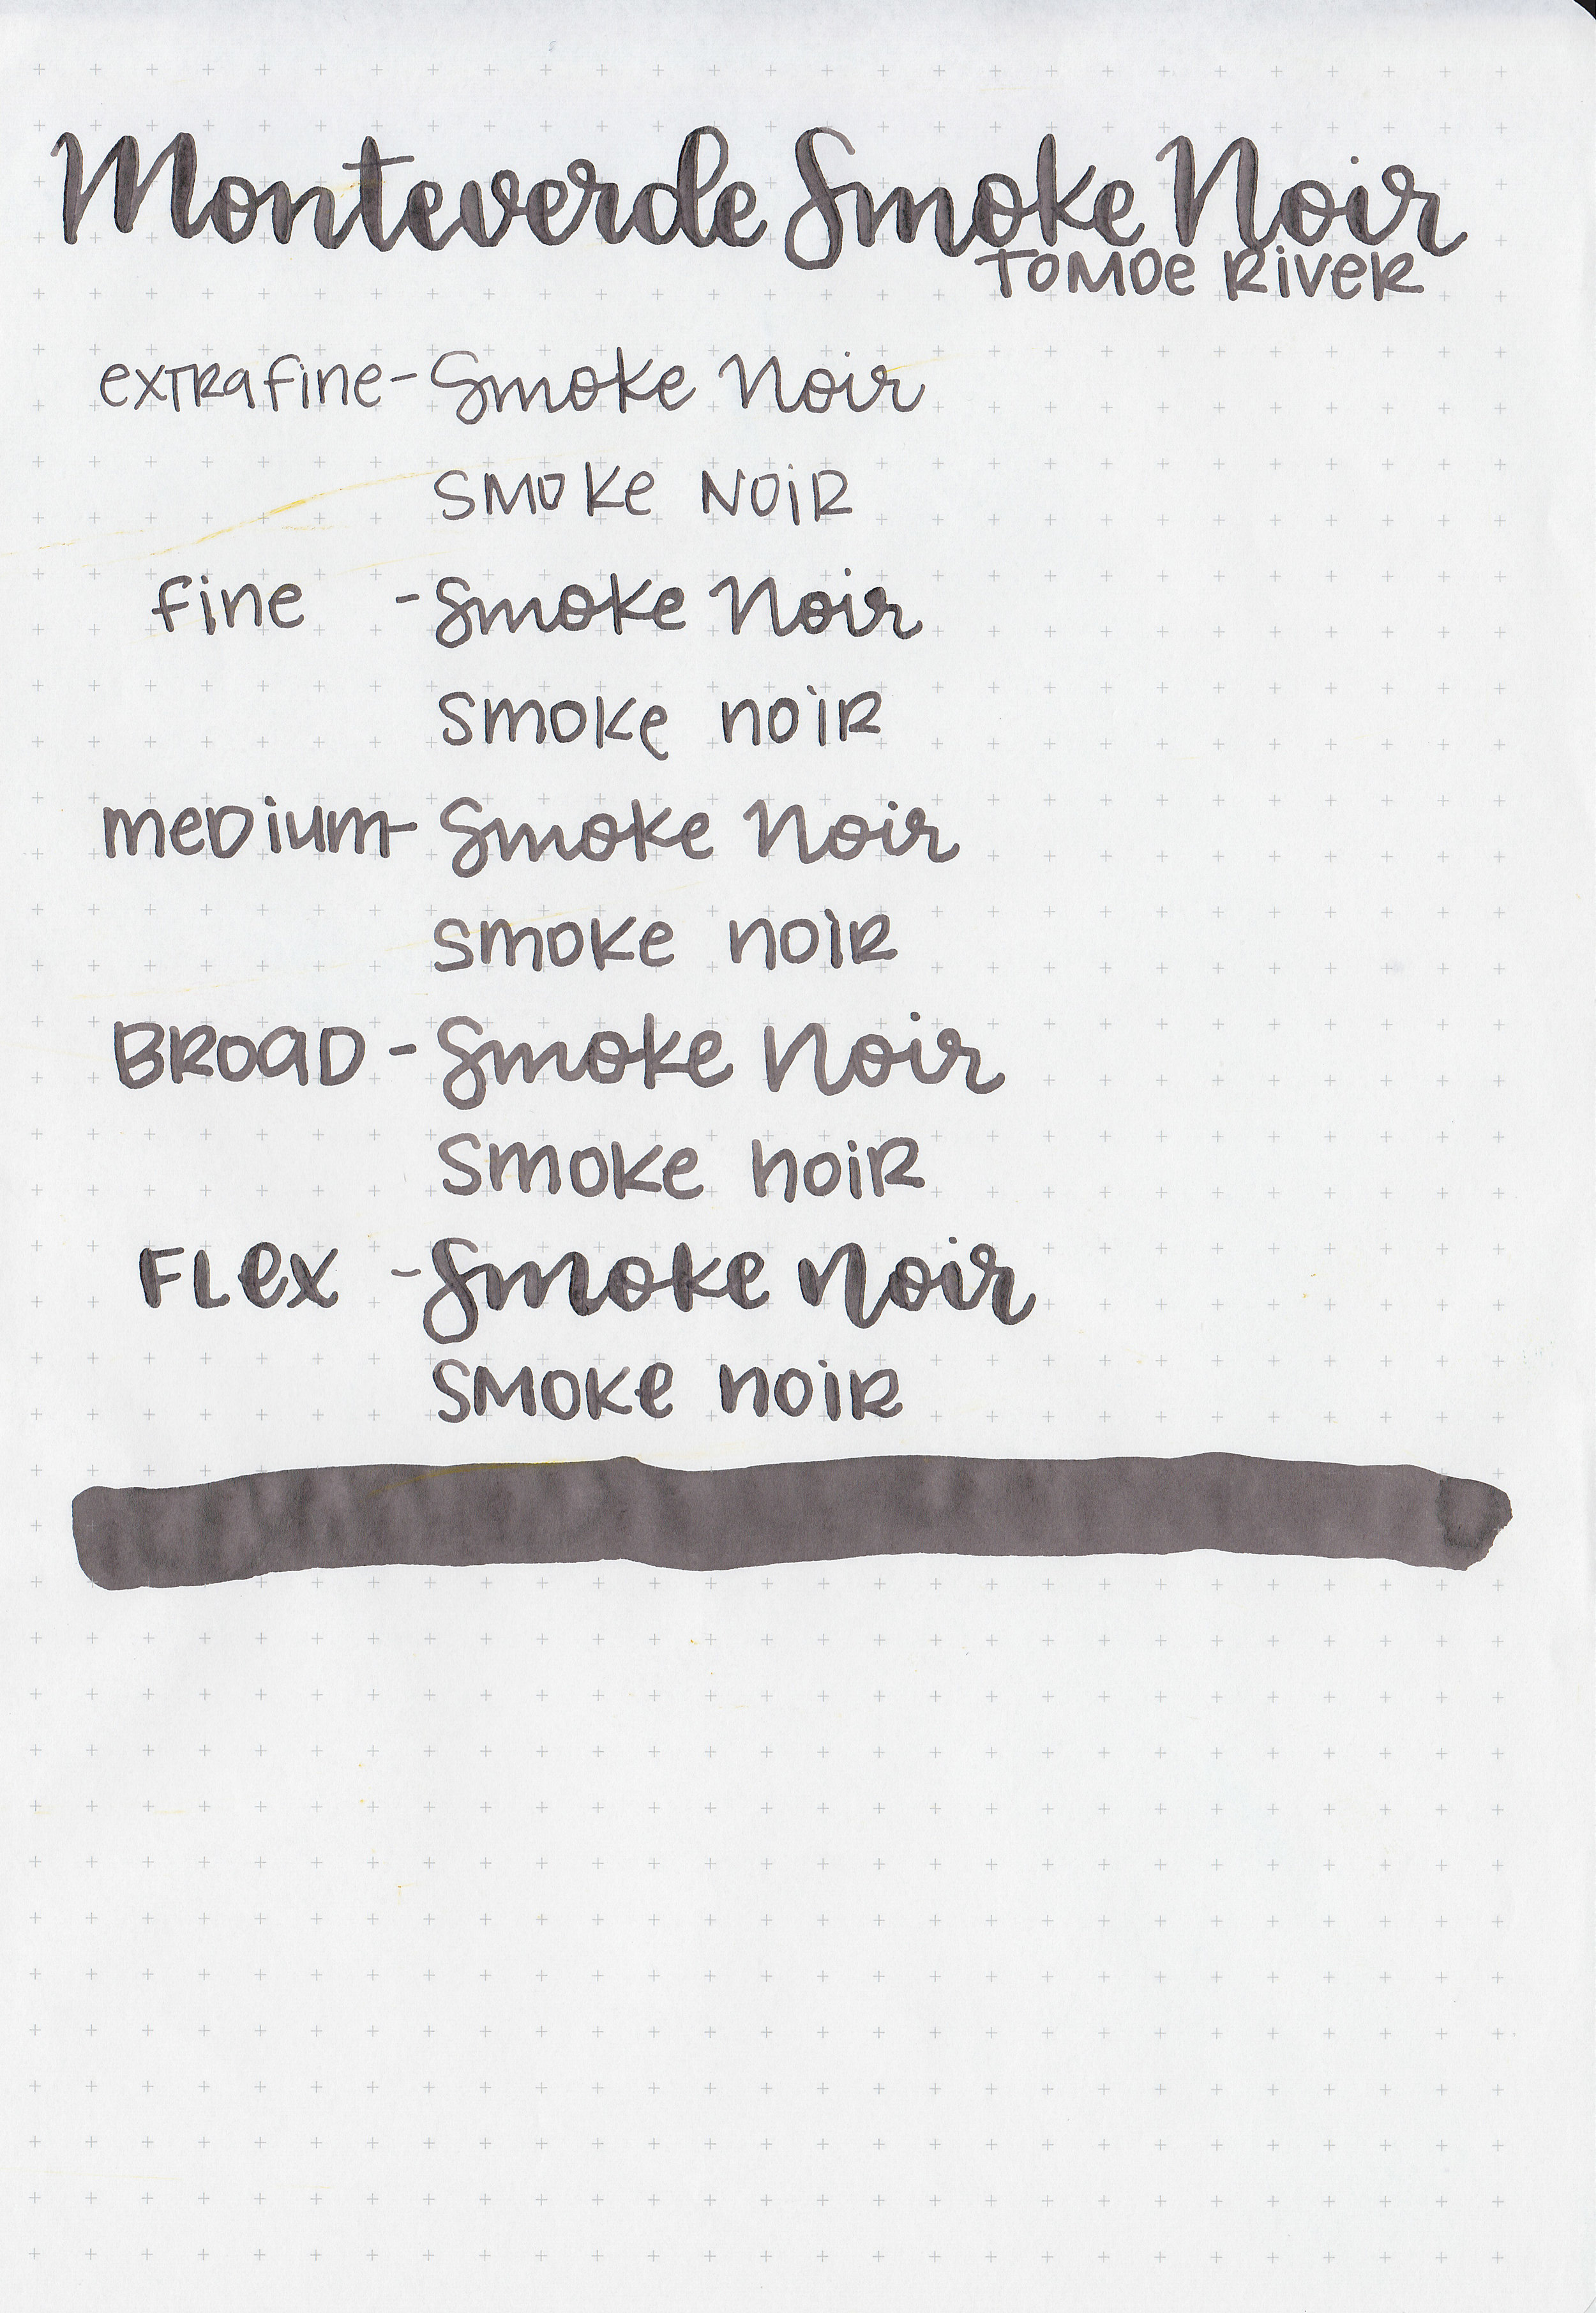 Monteverde Smoke Noir
TOMOe RiVeR
exTRafine - Smoke Noir
SMOKe NOiR
fine - Smoke Noir
Smoke noiR
meDium - Smoke Noir
smoke noiR
BROaD - Smoke Noir
Smoke noiR
FLex - Smoke Noir
SMOKe noiR